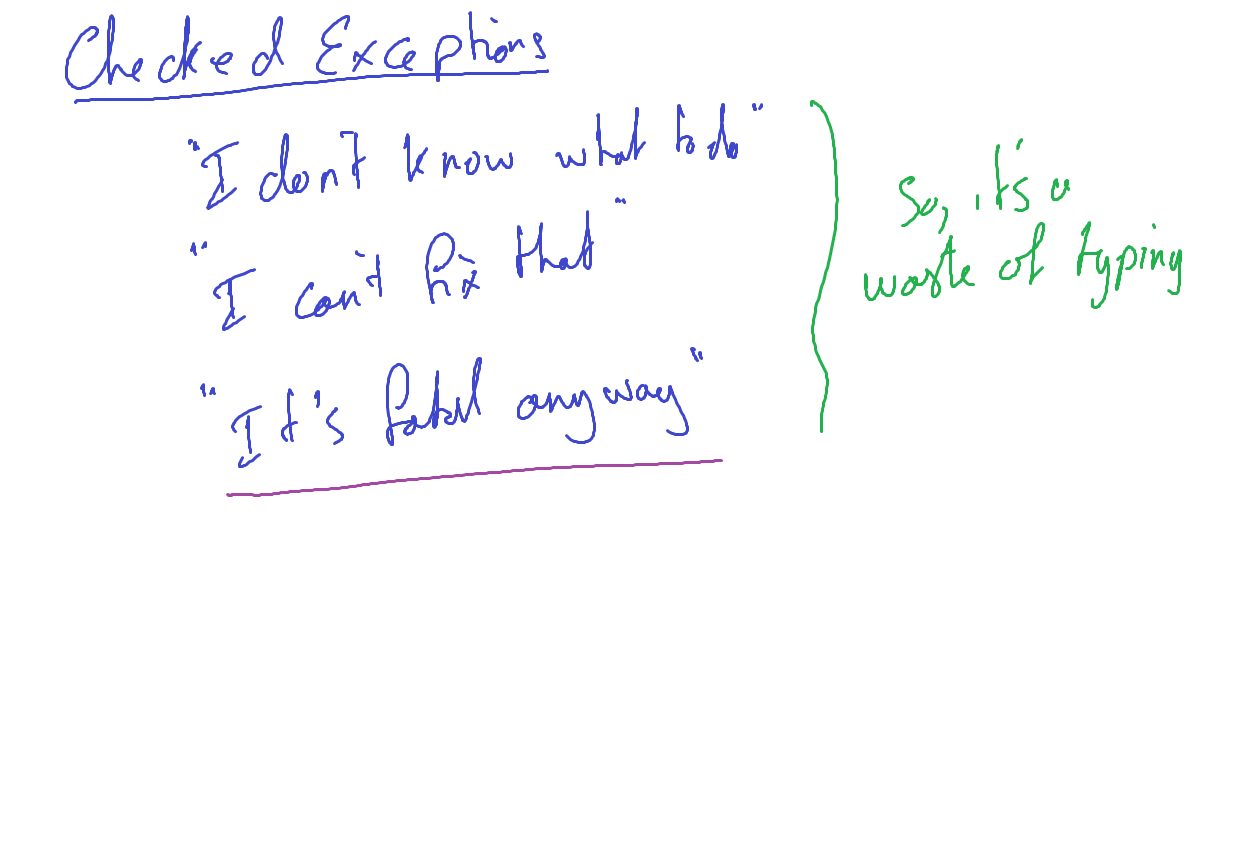 Checked Exceptions
"I don't know what to do"
"I can't fix that"
"It's fatal anyway"
So, it's a
waste of typing